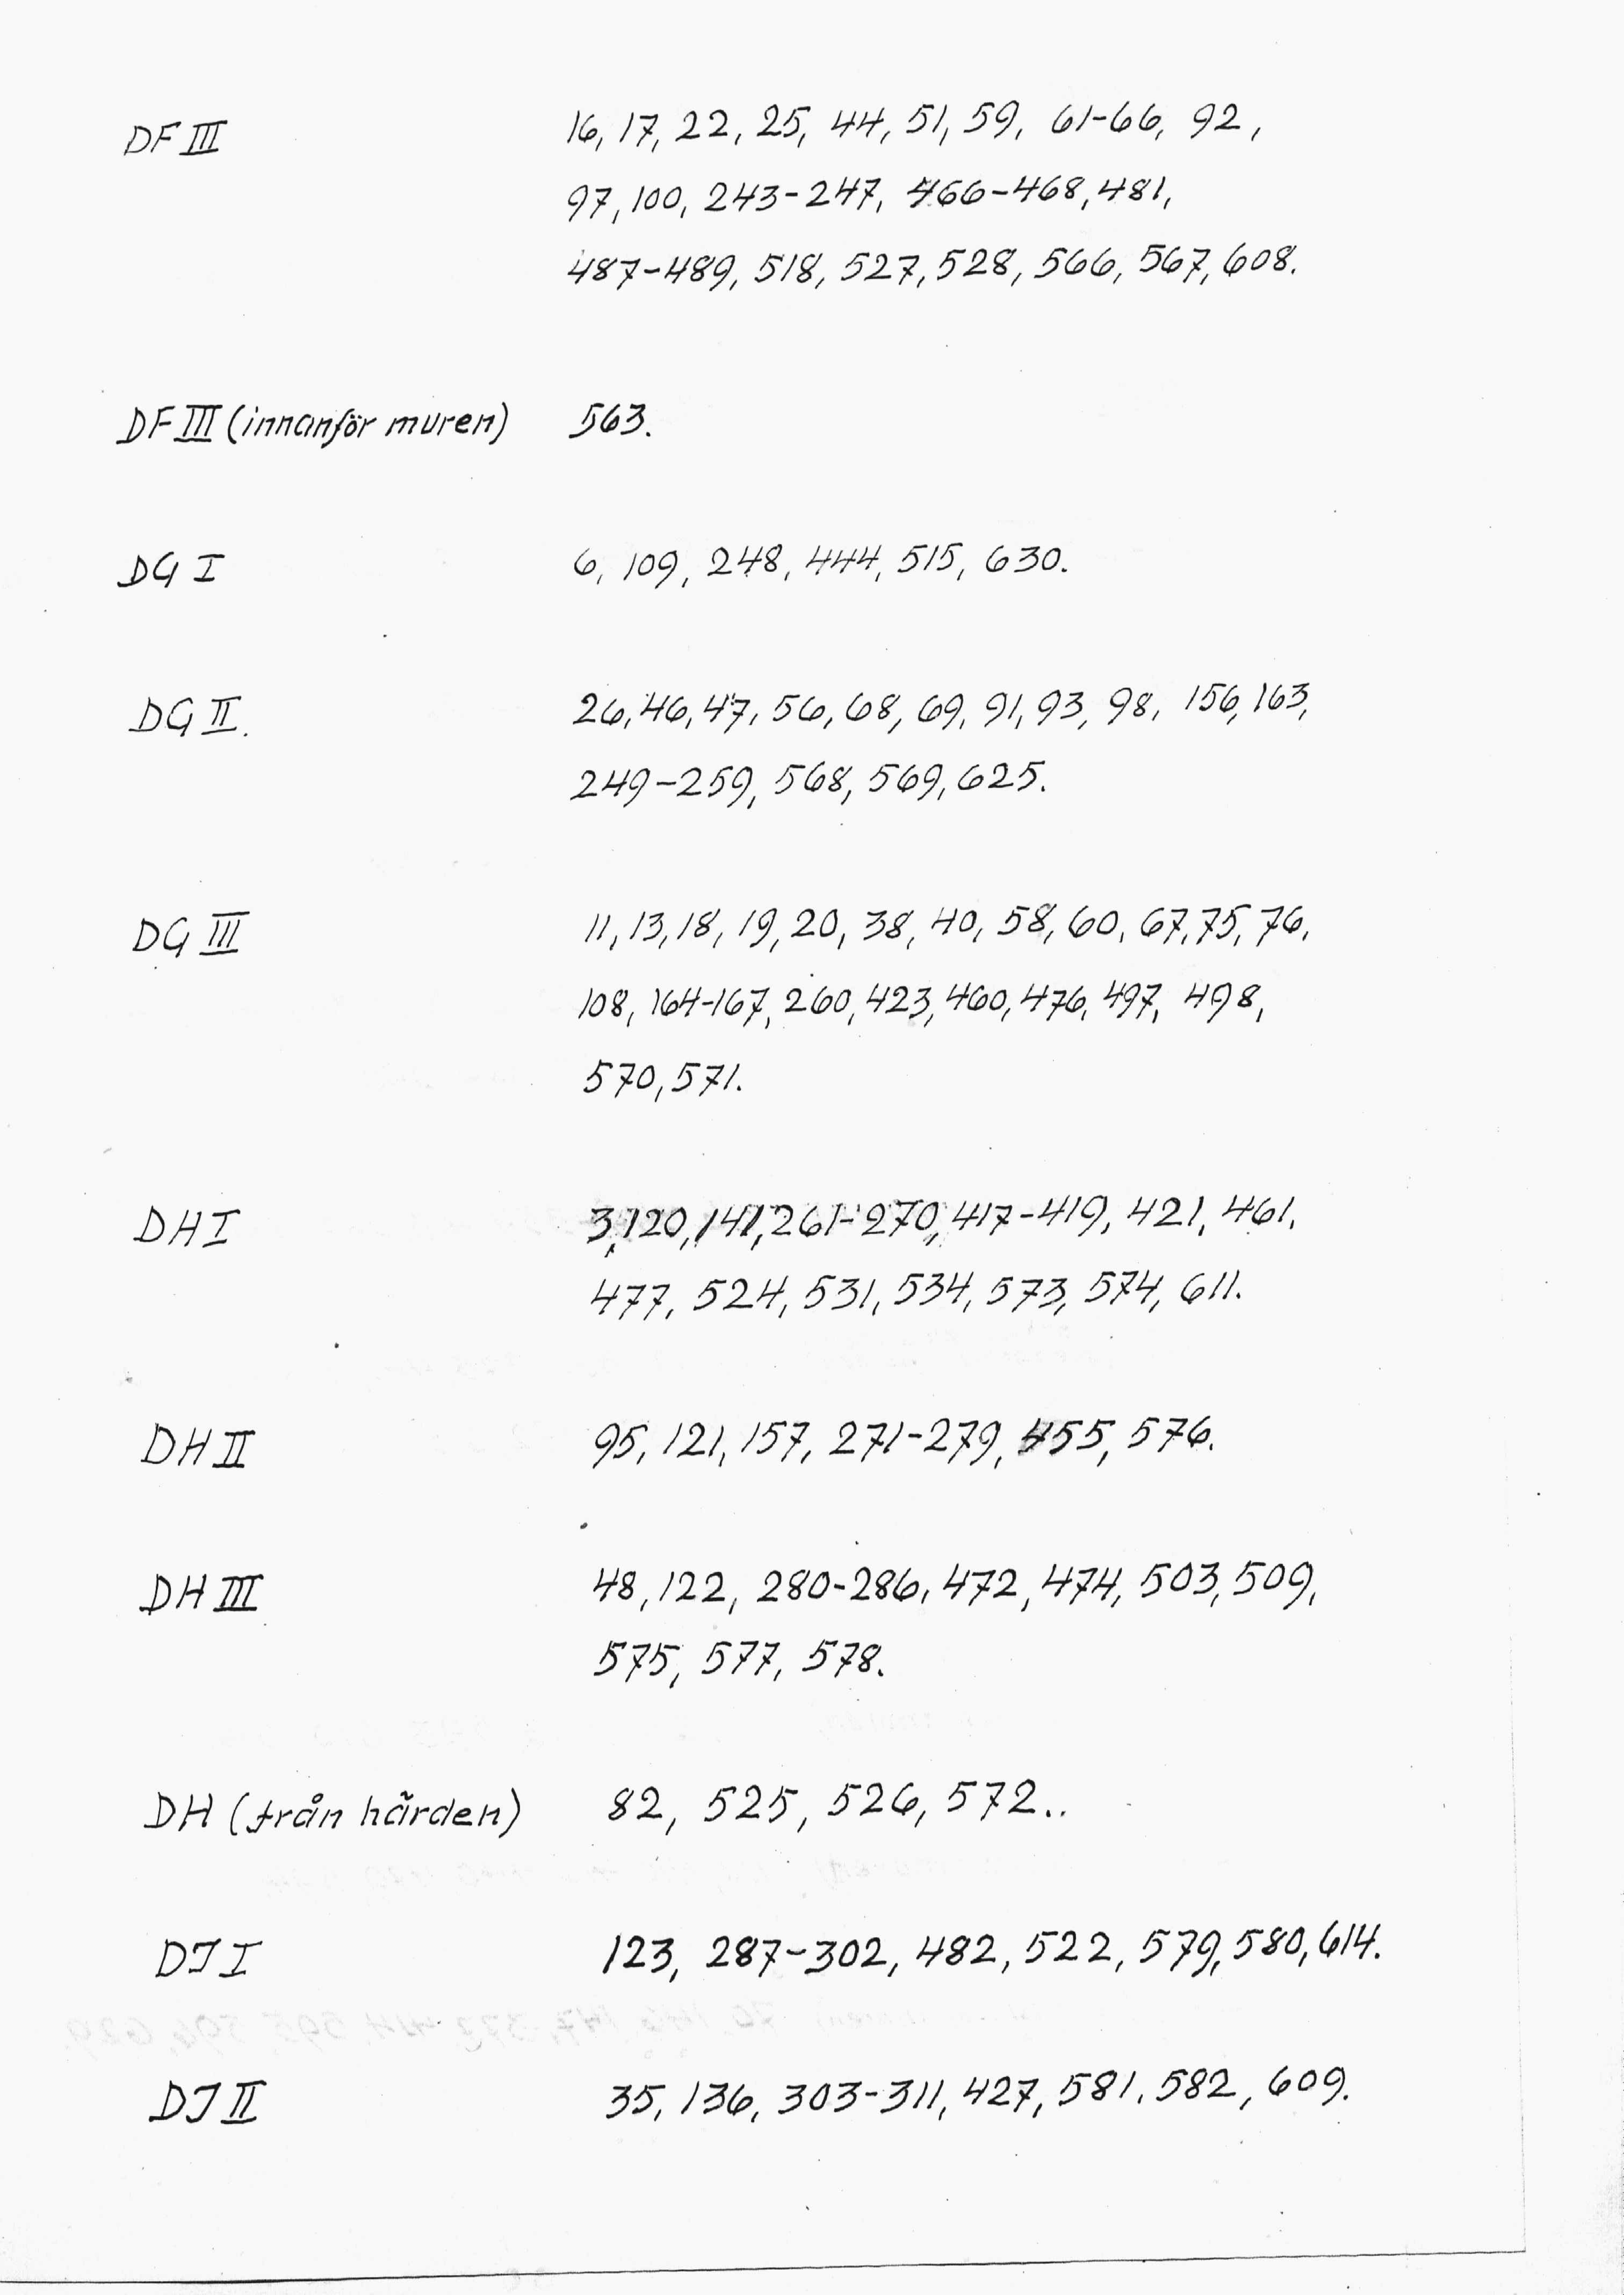 DF III 16, 17, 22, 25, 44, 51, 59, 61-66, 92,
97, 100, 243-247, 466-468, 481,
487-489, 518, 527, 528, 566, 567, 608.
DF III (innanför muren) 563.
DG I 6, 109, 248, 444, 515, 630.
DG II. 26, 46, 47, 56, 68, 69, 91, 93, 98, 156, 163,
249-259, 568, 569, 625.
DG III 11, 13, 18, 19, 20, 38, 40, 58, 60, 67, 75, 76,
108, 164-167, 260, 423, 460, 476, 497, 498,
570, 571.
DH I 3, 120, 141, 261-270, 417-419, 421, 461,
477, 524, 531, 534, 573, 574, 611.
DH II 95, 121, 157, 271-279, 455, 576.
DH III 48, 122, 280-286, 472, 474, 503, 509,
575, 577, 578.
DH (från härden) 82, 525, 526, 572..
DJ I 123, 287-302, 482, 522, 579, 580, 614.
DJ II 35, 136, 303-311, 427, 581, 582, 609.